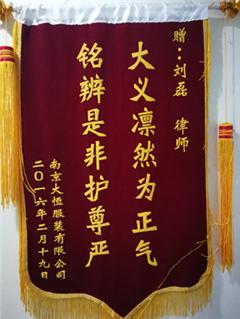 赠：刘磊 律师
大义凛然为正气
铭辨是非护尊严
南京大恒服装有限公司
二〇一六年二月十九日